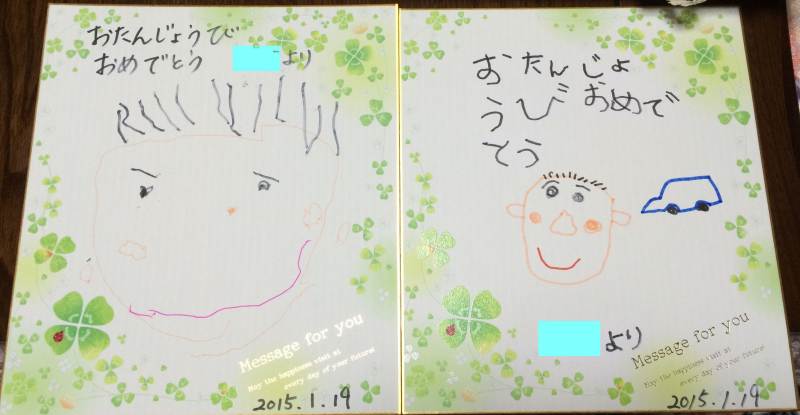 おたんじょうび
おめでとう より
Message for you
May the happiness visit at
every day of your future!
2015.1.19
おたんじょ
うび おめで
とう
より
Message for you
May the happiness visit at
every day of your future!
2015.1.19